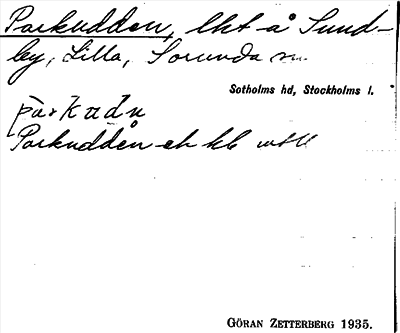 Parkudden, lht å Sund-
by, Lilla, Sorunda sn.
Sotholms hd, Stockholms l.
parkudn
Parkudden ek kb
GÖRAN ZETTERBERG 1935.